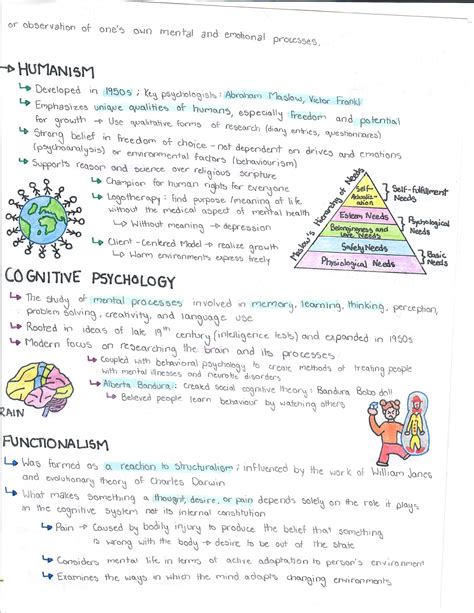 or observation of one's own mental and emotional processes.
→ HUMANISM
↳ Developed in 1950s ; Key psychologists : Abraham Maslow, Victor Frankl
↳ Emphasizes unique qualities of humans, especially freedom and potential
for growth → Use qualitative forms of research (diary entries, questionnaires)
↳ Strong belief in freedom of choice - not dependent on drives and emotions
(psychoanalysis) or environmental factors (behaviourism)
↳ Supports reason and science over religious scripture
↳ Champion for human rights for everyone
↳ Logotherapy : find purpose/meaning of life
without the medical aspect of mental health
↳ Without meaning → depression
↳ Client-Centered Model → realize growth
↳ Warm environments express freely
Maslow's Hierarchy of Needs
Self-
Actualiz-
ation
Esteem Needs
Belongingness and
Love Needs
Safety Needs
Physiological Needs
Self-fulfillment
Needs
Psychological
Needs
Basic
Needs
COGNITIVE PSYCHOLOGY
↳ The study of mental processes involved in memory, learning, thinking, perception,
problem solving, creativity, and language use
↳ Rooted in ideas of late 19th century (intelligence tests) and expanded in 1950s
↳ Modern focus on researching the brain and its processes
↳ Coupled with behavioral psychology to create methods of treating people
with mental illnesses and neurotic disorders
↳ Alberta Bandura : created social cognitive theory : Bandura Bobo doll
↳ Beleived people learn behaviour by watching others
RAIN
FUNCTIONALISM
↳ Was formed as a reaction to structuralism ; influenced by the work of William James
and evolutionary theory of Charles Darwin
↳ What makes something a thought, desire, or pain depends solely on the role it plays
in the cognitive system not its internal constitution
↳ Pain → Caused by bodily injury to produce the belief that something
is wrong with the body → desire to be out of the state
↳ Considers mental life in terms of active adaptation to person's environment
↳ Examines the ways in which the mind adapts changing environments